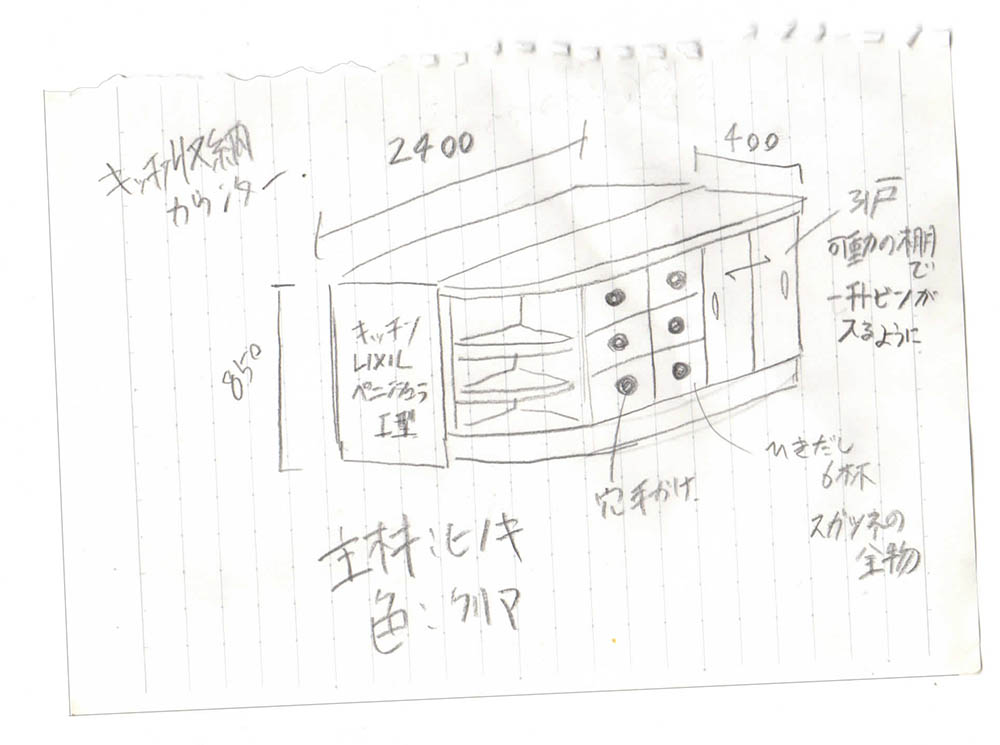 キッチン収納
カウンター
2400
400
850
引戸
可動の棚
で
一升ビンが
入るように
キッチン
LIXIL
ペニンシュラ
I型
穴手かけ
ひきだし
6杯
スガツネの
金物
主材:ヒノキ
色:クリア